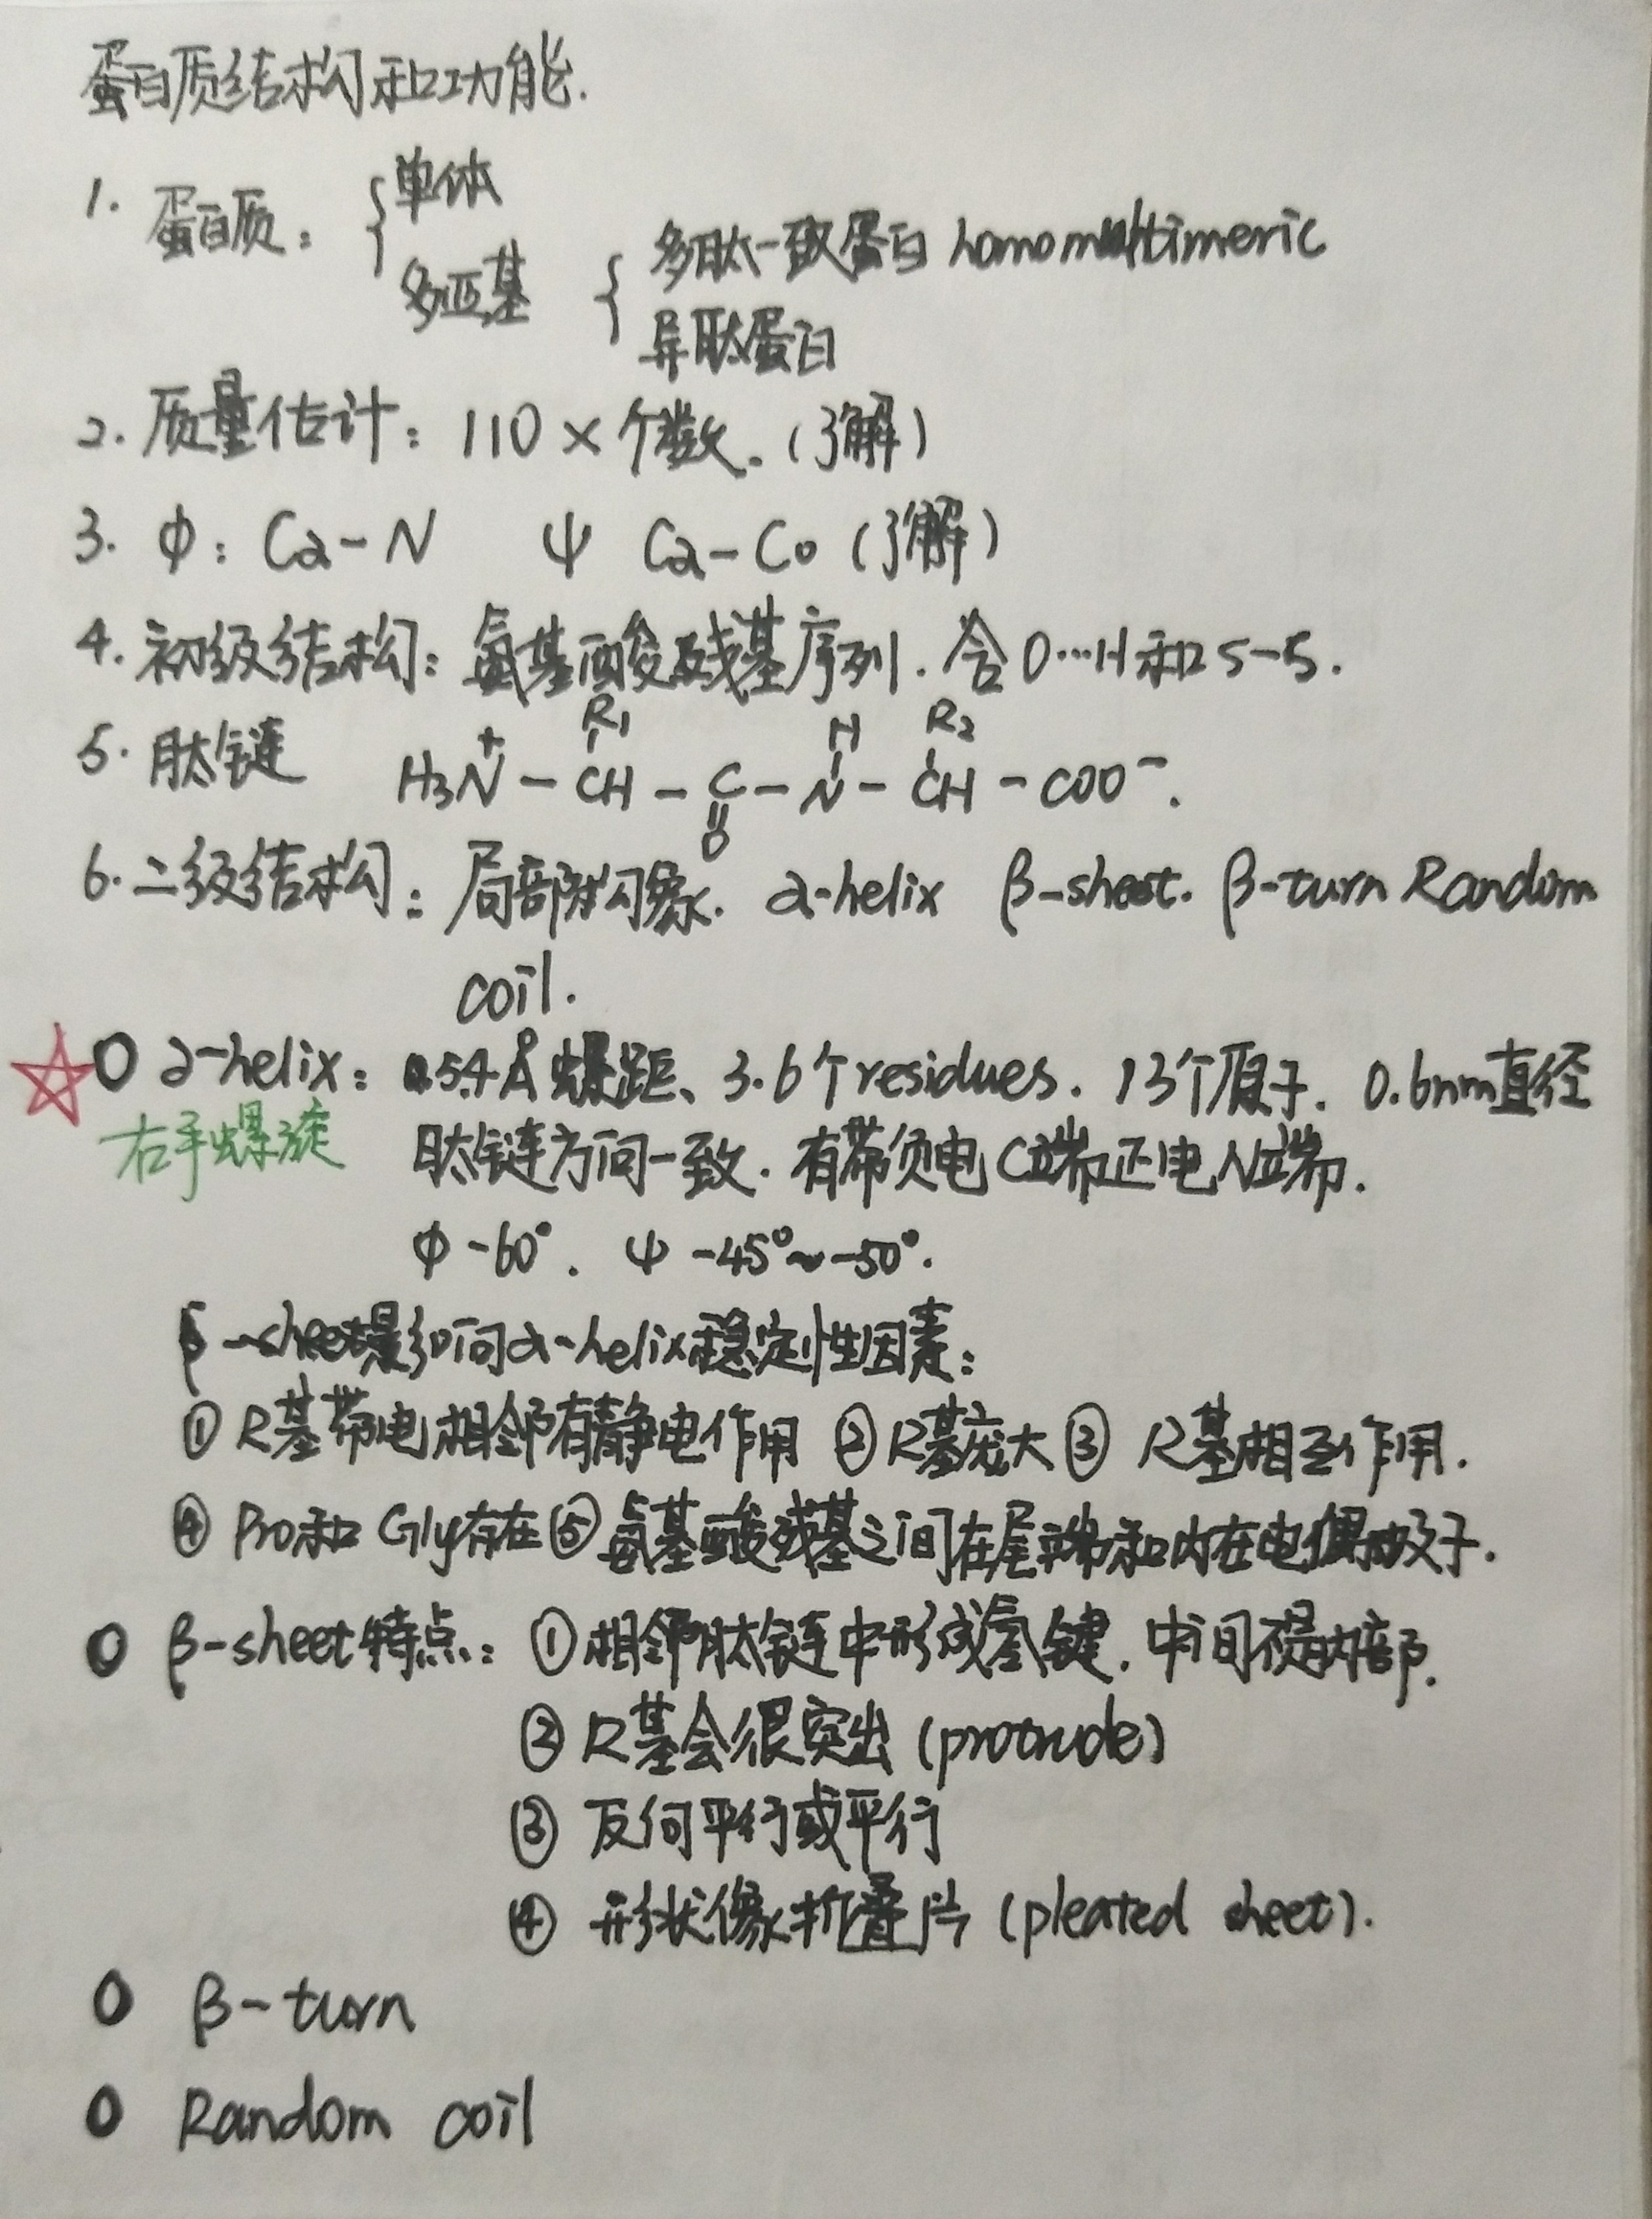 蛋白质结构和功能.
1. 蛋白质: { 单体
多亚基 { 多肽一致蛋白 homomultimeric
异肽蛋白
2. 质量估计: 110 × 个数. (了解)
3. ϕ: Cα-N ψ Cα-Co (了解)
4. 初级结构: 氨基酸残基序列. 含O…H和S-S.
5. 肽链 H₃N⁺ - CH(R₁) - C(=O) - N(H) - CH(R₂) - COO⁻.
6. 二级结构: 局部构象. α-helix β-sheet. β-turn Random
coil.
O α-helix: 5.4Å 螺距、3.6个residues. 13个原子. 0.6nm直径
右手螺旋 肽链方向一致. 有带负电C端正电N端.
ϕ -60°. ψ -45°~-50°.
影响α-helix稳定性因素:
① R基带电相邻有静电作用 ② R基庞大 ③ R基相互作用.
④ Pro和Gly存在 ⑤ 氨基酸残基之间在尾端和内在电偶极子.
O β-sheet特点: ① 相邻肽链中形成氢键. 中间不是内部.
② R基会很突出 (protrude)
③ 反向平行或平行
④ 形状像折叠片 (pleated sheet).
O β-turn
O Random coil